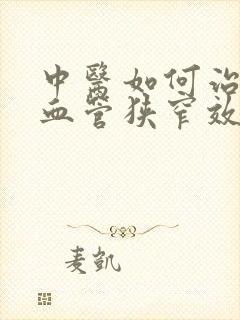 中醫如何治
血管狹窄效
麦凱